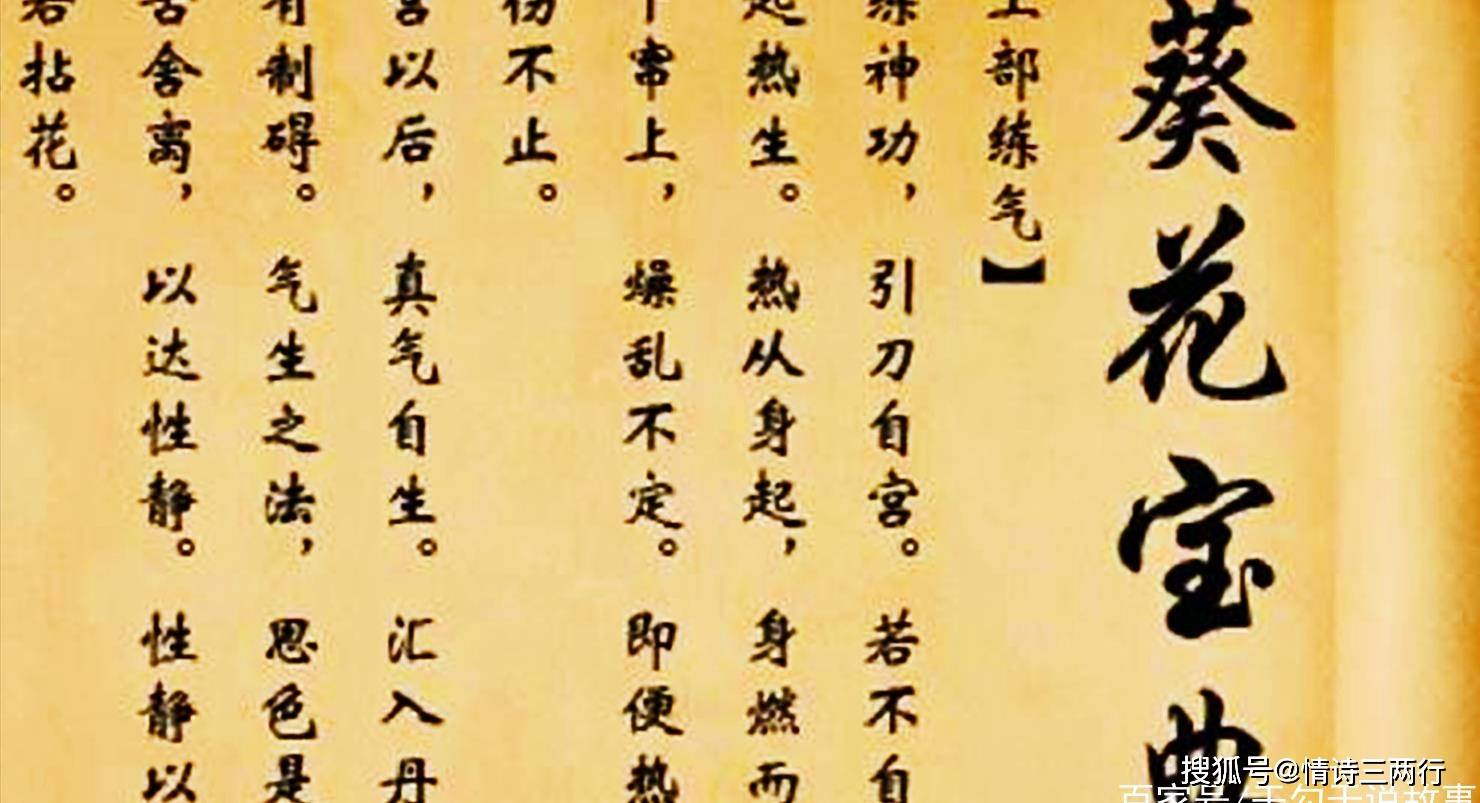 葵花宝典
上部练气】
练神功，引刀自宫。若不自
起热生。热从身起，身燃而
下帘上，燥乱不定。即便热
伤不止。
宫以后，真气自生。汇入丹
有制碍。气生之法，思色是
苦舍离，以达性静。性静以
若拈花。
搜狐号@情诗三两行
百家号/
说故事